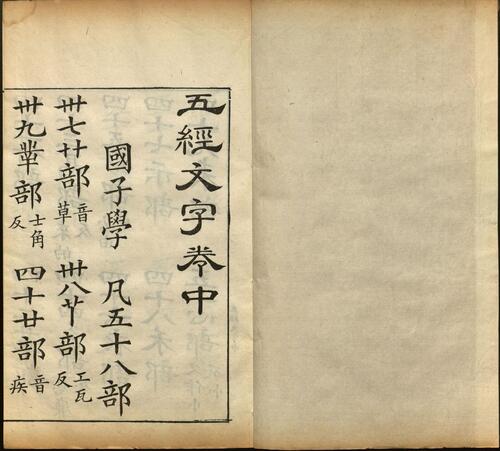 五經文字卷中
國子學 凡五十八部
卅七艹部音草 卅八𦫳部工瓦反
卅九丵部士角反 四十疒部音疾